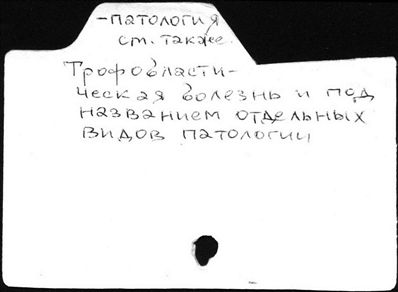 -патология
см. также.
Трофобласти-
ческая болезнь и под
названием отдельных
видов патологии